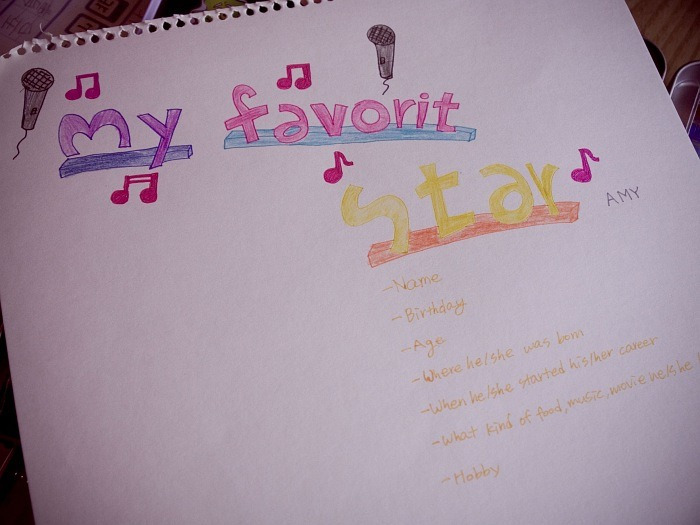 My favorit
Star
AMY
-Name
-Birthday
-Age
-Where he/she was born
-When he/she started his/her career
-What kind of food, music, movie he/she
-Hobby